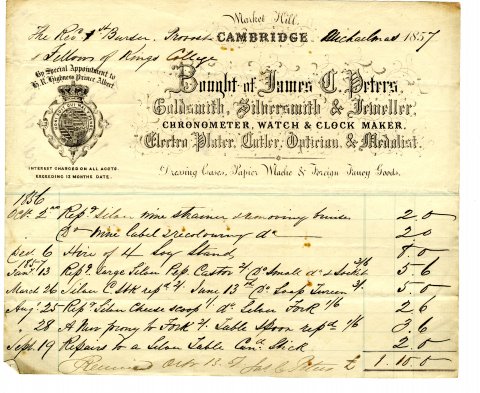 Market Hill,
CAMBRIDGE. Michaelmas 1857
The Rev.d Burder, Provost
& Fellows of Kings College
By Special Appointment to
H.R. Highness Prince Albert.
Bought of James C. Peters,
Goldsmith, Silversmith & Jeweller,
CHRONOMETER, WATCH & CLOCK MAKER,
Electro Plater, Cutler, Optician & Medalist.
Dressing Cases, Papier Mache & Foreign Fancy Goods.
INTEREST CHARGED ON ALL ACCTS.
EXCEEDING 12 MONTHS DATE.
1856
Oct. 2nd Repg Silver wine strainer & removing bruises 2 0
Do wine label & recolouring do 2 0
Decd 6 Hire of 4 Stand, 8 0
1857
Jany 13 Repg large Silver Pep. Castor 2/ Do Small do & Socket 3/6 5 6
March 26 Silver repd 2/ June 13th Do Soup Tureen 3/ 5 0
Augt 25 Repg Silver Cheese scoop 1/ do Silver Fork 1/6 2 6
" 28 A New prong to Fork 2/ Table Spoon repd 1/6 3 6
Sept 19 Repairs to a Silver Table Candlestick 2 0
Received Octr 13 57 Jas C Peters £ 1 10 0